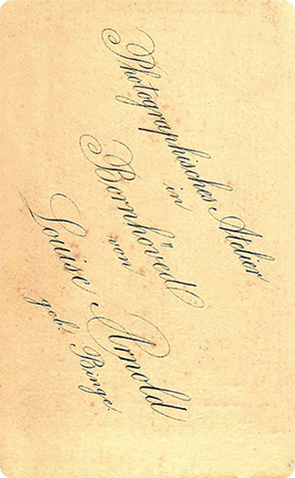 Photographisches Atelier
in
Bornhöved
von
Louise Arnold
geb. Binge.